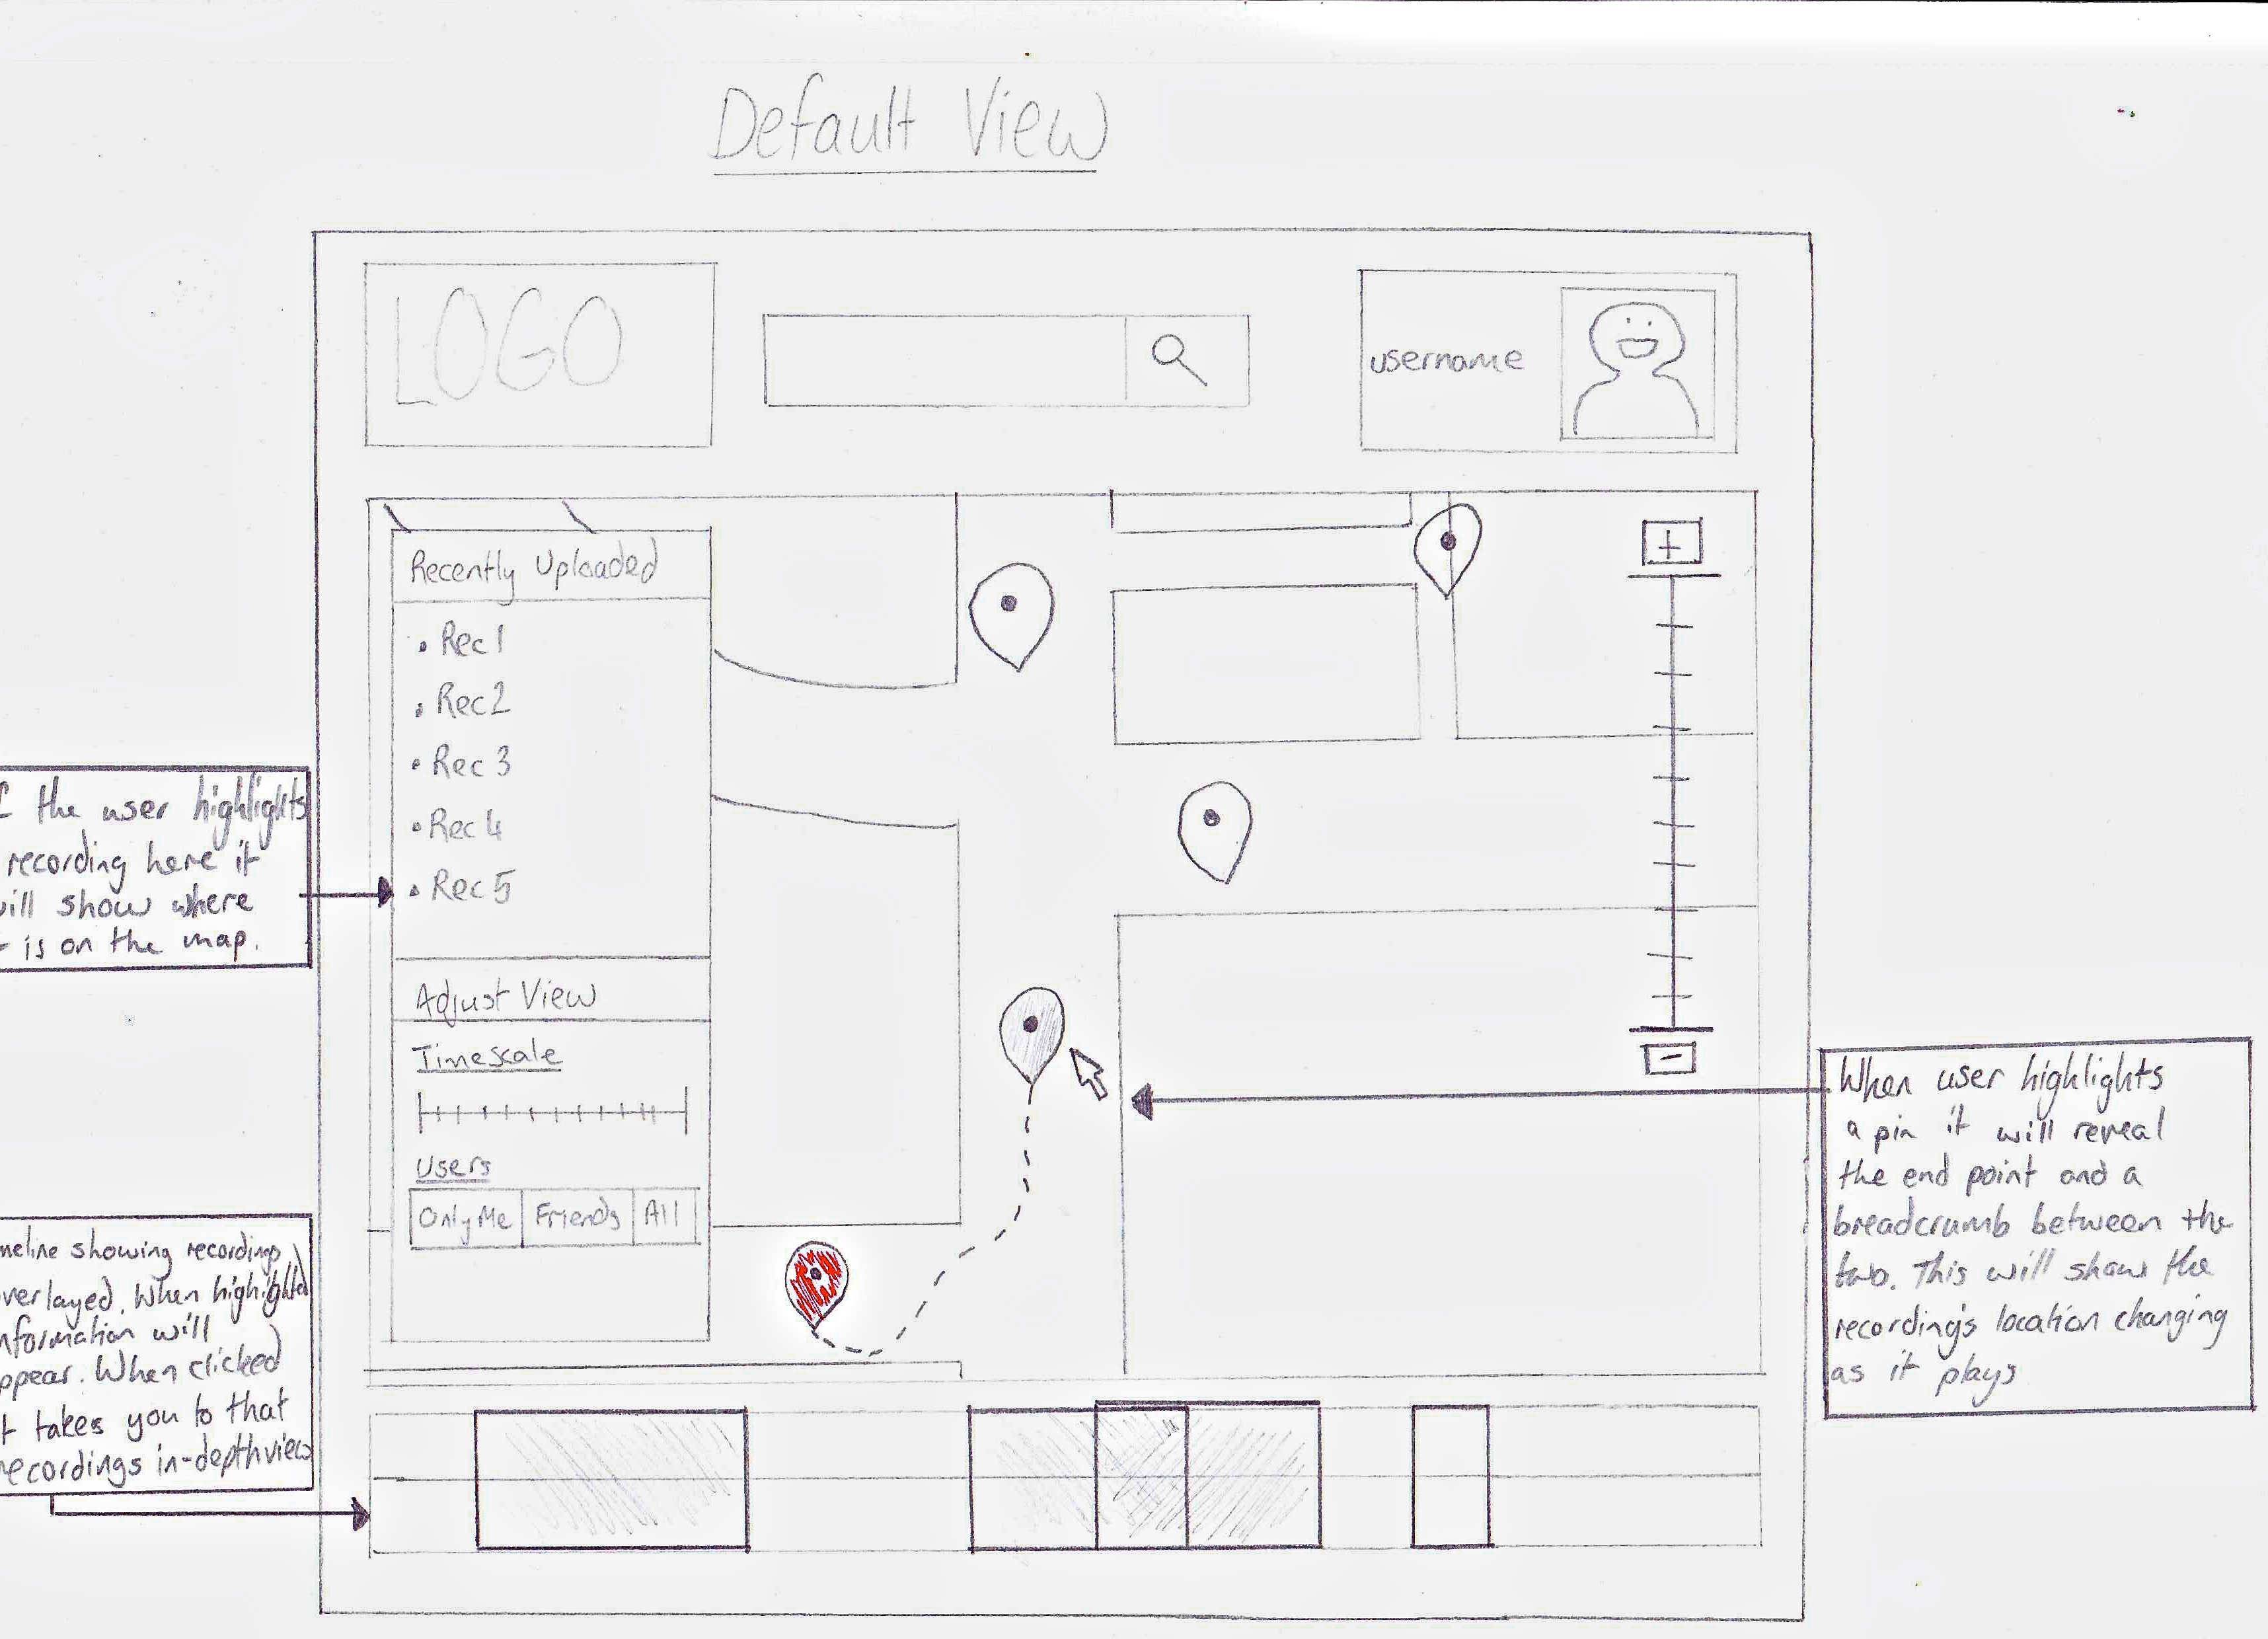 Default View
LOGO
username
Recently Uploaded
• Rec 1
• Rec 2
• Rec 3
• Rec 4
• Rec 5
Adjust View
Timescale
Users
Only Me Friends All
+
-
the user highlights
recording here it
will show where
is on the map.
meline showing recordings
verlayed. When highlighted
nformation will
ppear. When clicked
t takes you to that
recordings in-depth view
When user highlights
a pin it will reveal
the end point and a
breadcrumb between the
two. This will show the
recording's location changing
as it plays